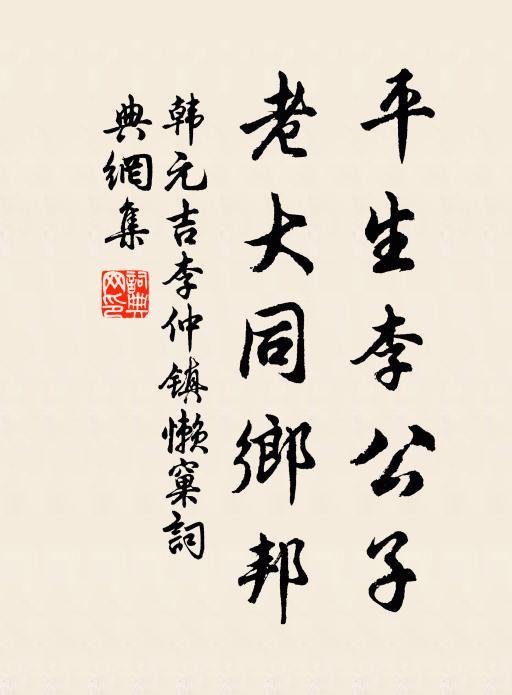 平生李公子
老大同鄉邦
韩元吉李仲镇懒窠詞
典網集
詞典網印